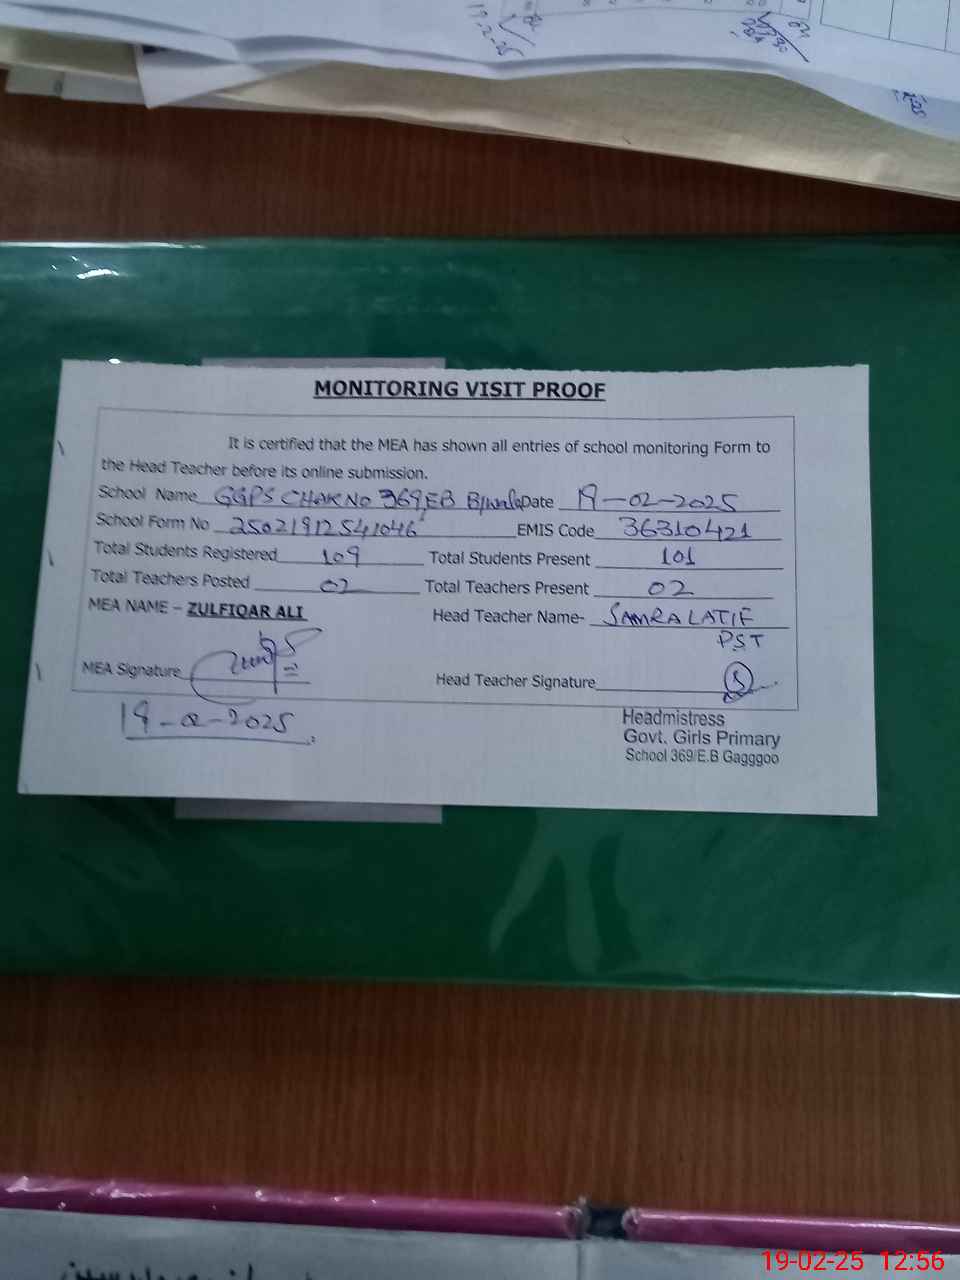 19-2-25
MONITORING VISIT PROOF
It is certified that the MEA has shown all entries of school monitoring Form to
the Head Teacher before its online submission.
School Name GGPS CHAK NO 369,EB Date 19-02-2025
School Form No 25021912541046 EMIS Code 36310421
Total Students Registered 109 Total Students Present 101
Total Teachers Posted 02 Total Teachers Present 02
MEA NAME – ZULFIQAR ALI Head Teacher Name- SAMRA LATIF
PST
MEA Signature Head Teacher Signature
19-02-2025
Headmistress
Govt. Girls Primary
School 369/E.B Gagggoo
19-02-25 12:56